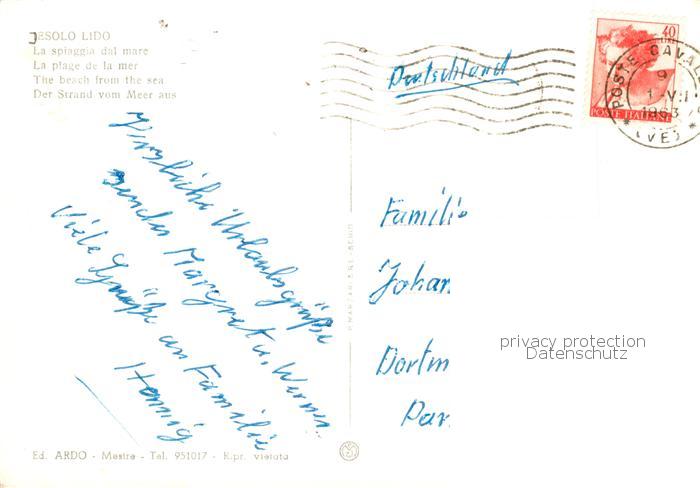 JESOLO LIDO
La spiaggia dal mare
La plage de la mer
The beach from the sea
Der Strand vom Meer aus
Deutschland
40
POSTE ITALIANE
POSTE CAVAL
9
1-VI-
1963
(VE)
Herzliche Urlaubsgrüße
senden Margret u. Werner.
Viele Grüße an Familie
Hennig
Familie
Johan
Dortm
Par
privacy protection
Datenschutz
Ed. ARDO - Mestre - Tel. 951017 - R.pr. vietata